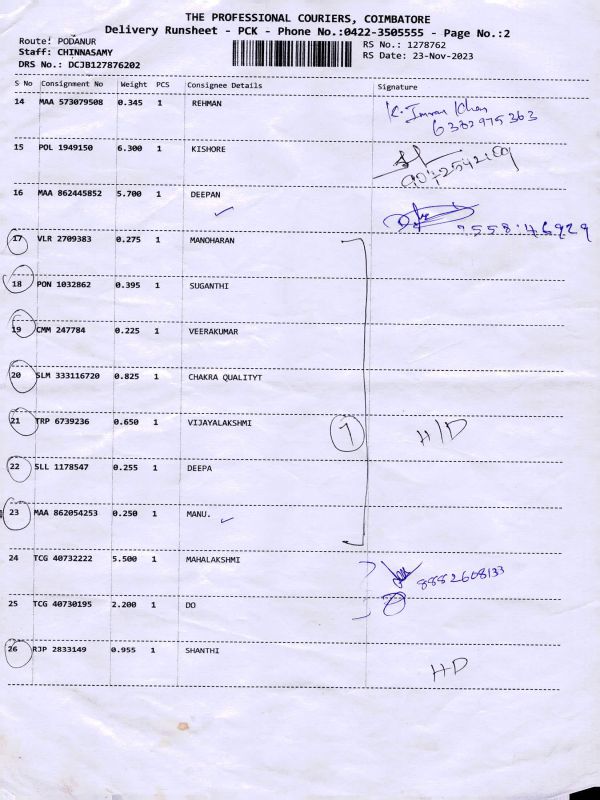 THE PROFESSIONAL COURIERS, COIMBATORE
Delivery Runsheet - PCK - Phone No.:0422-3505555 - Page No.:2
Route: PODANUR
Staff: CHINNASAMY
DRS No.: DCJB127876202
RS No.: 1278762
RS Date: 23-Nov-2023
S No Consignment No Weight PCS Consignee Details Signature
14 MAA 573079508 0.345 1 REHMAN K. Imran Khan
6382975363
15 POL 1949150 6.300 1 KISHORE
16 MAA 862445852 5.700 1 DEEPAN
17 VLR 2709383 0.275 1 MANOHARAN
18 PON 1032862 0.395 1 SUGANTHI
19 CMM 247784 0.225 1 VEERAKUMAR
20 SLM 333116720 0.825 1 CHAKRA QUALITYT
21 TRP 6739236 0.650 1 VIJAYALAKSHMI 7 H/D
22 SLL 1178547 0.255 1 DEEPA
23 MAA 862054253 0.250 1 MANU.
24 TCG 40732222 5.500 1 MAHALAKSHMI 8882608133
25 TCG 40730195 2.200 1 DO
26 RJP 2833149 0.955 1 SHANTHI HD